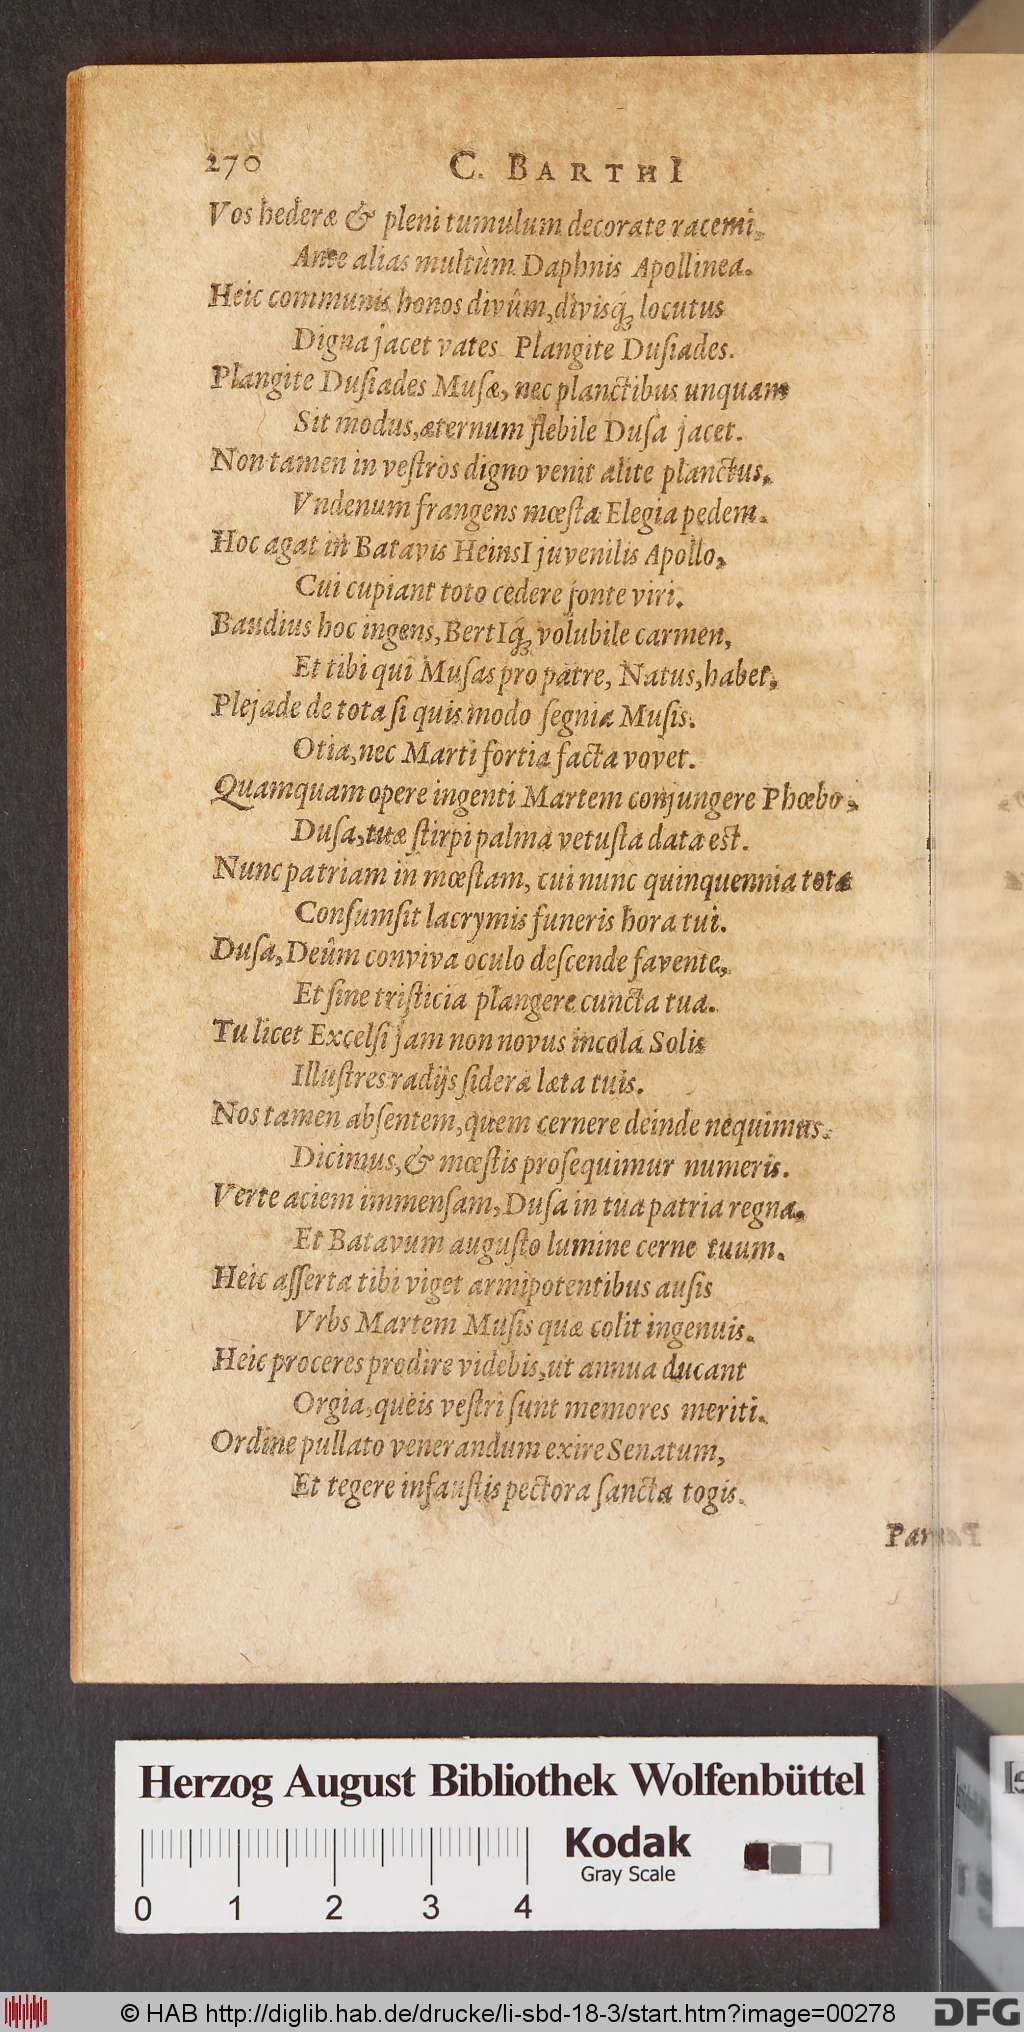 270 C. BARTHI
Vos hederæ & pleni tumulum decorate racemi,
Ante alias multùm Daphnis Apollinea.
Heic communis honos divûm, divisq́; locutus
Digna jacet vates. Plangite Duſiades.
Plangite Duſiades Muſæ, nec planctibus unquam
Sit modus, æternum flebile Duſa jacet.
Non tamen in veſtros digno venit alite planctus,
Vndenum frangens mœſta Elegia pedem.
Hoc agat in Batavis HeinsI juvenilis Apollo,
Cui cupiant toto cedere fonte viri.
Baudius hoc ingens, BertIq́; volubile carmen,
Et tibi qui Muſas pro patre, Natus, habet,
Plejade de tota ſi quis modo ſegnia Muſis.
Otia, nec Marti fortia facta vovet.
Quamquam opere ingenti Martem conjungere Phœbo,
Duſa, tuæ ſtirpi palma vetuſta data eſt.
Nunc patriam in mœſtam, cui nunc quinquennia tota
Conſumſit lacrymis funeris hora tui.
Duſa, Deûm conviva oculo deſcende favente,
Et ſine triſticia plangere cuncta tua.
Tu licet Excelſi jam non novus incola Solis
Illuſtres radijs ſidera læta tuis.
Nos tamen abſentem, quem cernere deinde nequimus.
Dicimus, & mœſtis proſequimur numeris.
Verte aciem immenſam, Duſa in tua patria regna,
Et Batavum auguſto lumine cerne tuum.
Heic aſſerta tibi viget armipotentibus auſis
Vrbs Martem Muſis quæ colit ingenuis.
Heic proceres prodire videbis, ut annua ducant
Orgia, queis veſtri ſunt memores meriti.
Ordine pullato venerandum exire Senatum,
Et tegere infauſtis pectora ſancta togis.
Herzog August Bibliothek Wolfenbüttel
Kodak
Gray Scale
0 1 2 3 4
© HAB http://diglib.hab.de/drucke/li-sbd-18-3/start.htm?image=00278 DFG